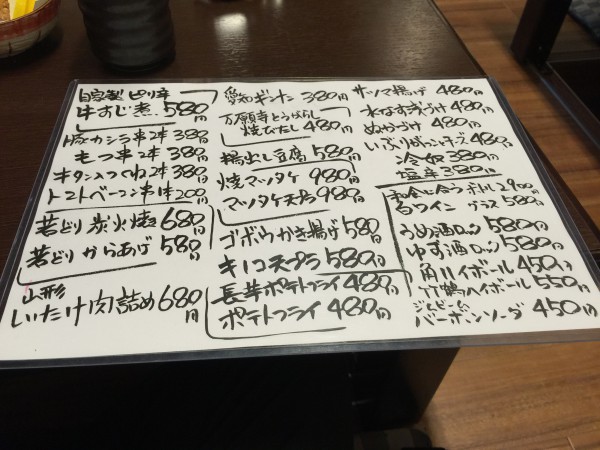 自家製 ピリ辛
牛すじ煮 580円
豚カシラ串2本 380円
もつ串2本 380円
牛タン入つくね2本 380円
トマトベーコン串1本 200円
若どり炭火焼き 680円
若どりからあげ 580円
山形
しいたけ肉詰め 680円
愛知ギンナン 380円
万願寺とうがらし
焼びたし 480円
揚出し豆腐 580円
焼マツタケ 980円
マツタケ天プラ 980円
ゴボウかき揚げ 580円
キノコ天プラ 580円
長芋ポテトフライ 480円
ポテトフライ 480円
サツマ揚げ 480円
水なす浅づけ 480円
ぬかづけ 480円
いぶりがっこチーズ 480円
冷奴 380円
塩辛 380円
和食に合うボトル2900円
白ワイン グラス580円
うめ酒ロック 580円
ゆず酒ロック 580円
角ハイボール 450円
竹鶴ハイボール 550円
ジムビーム
バーボンソーダ 450円